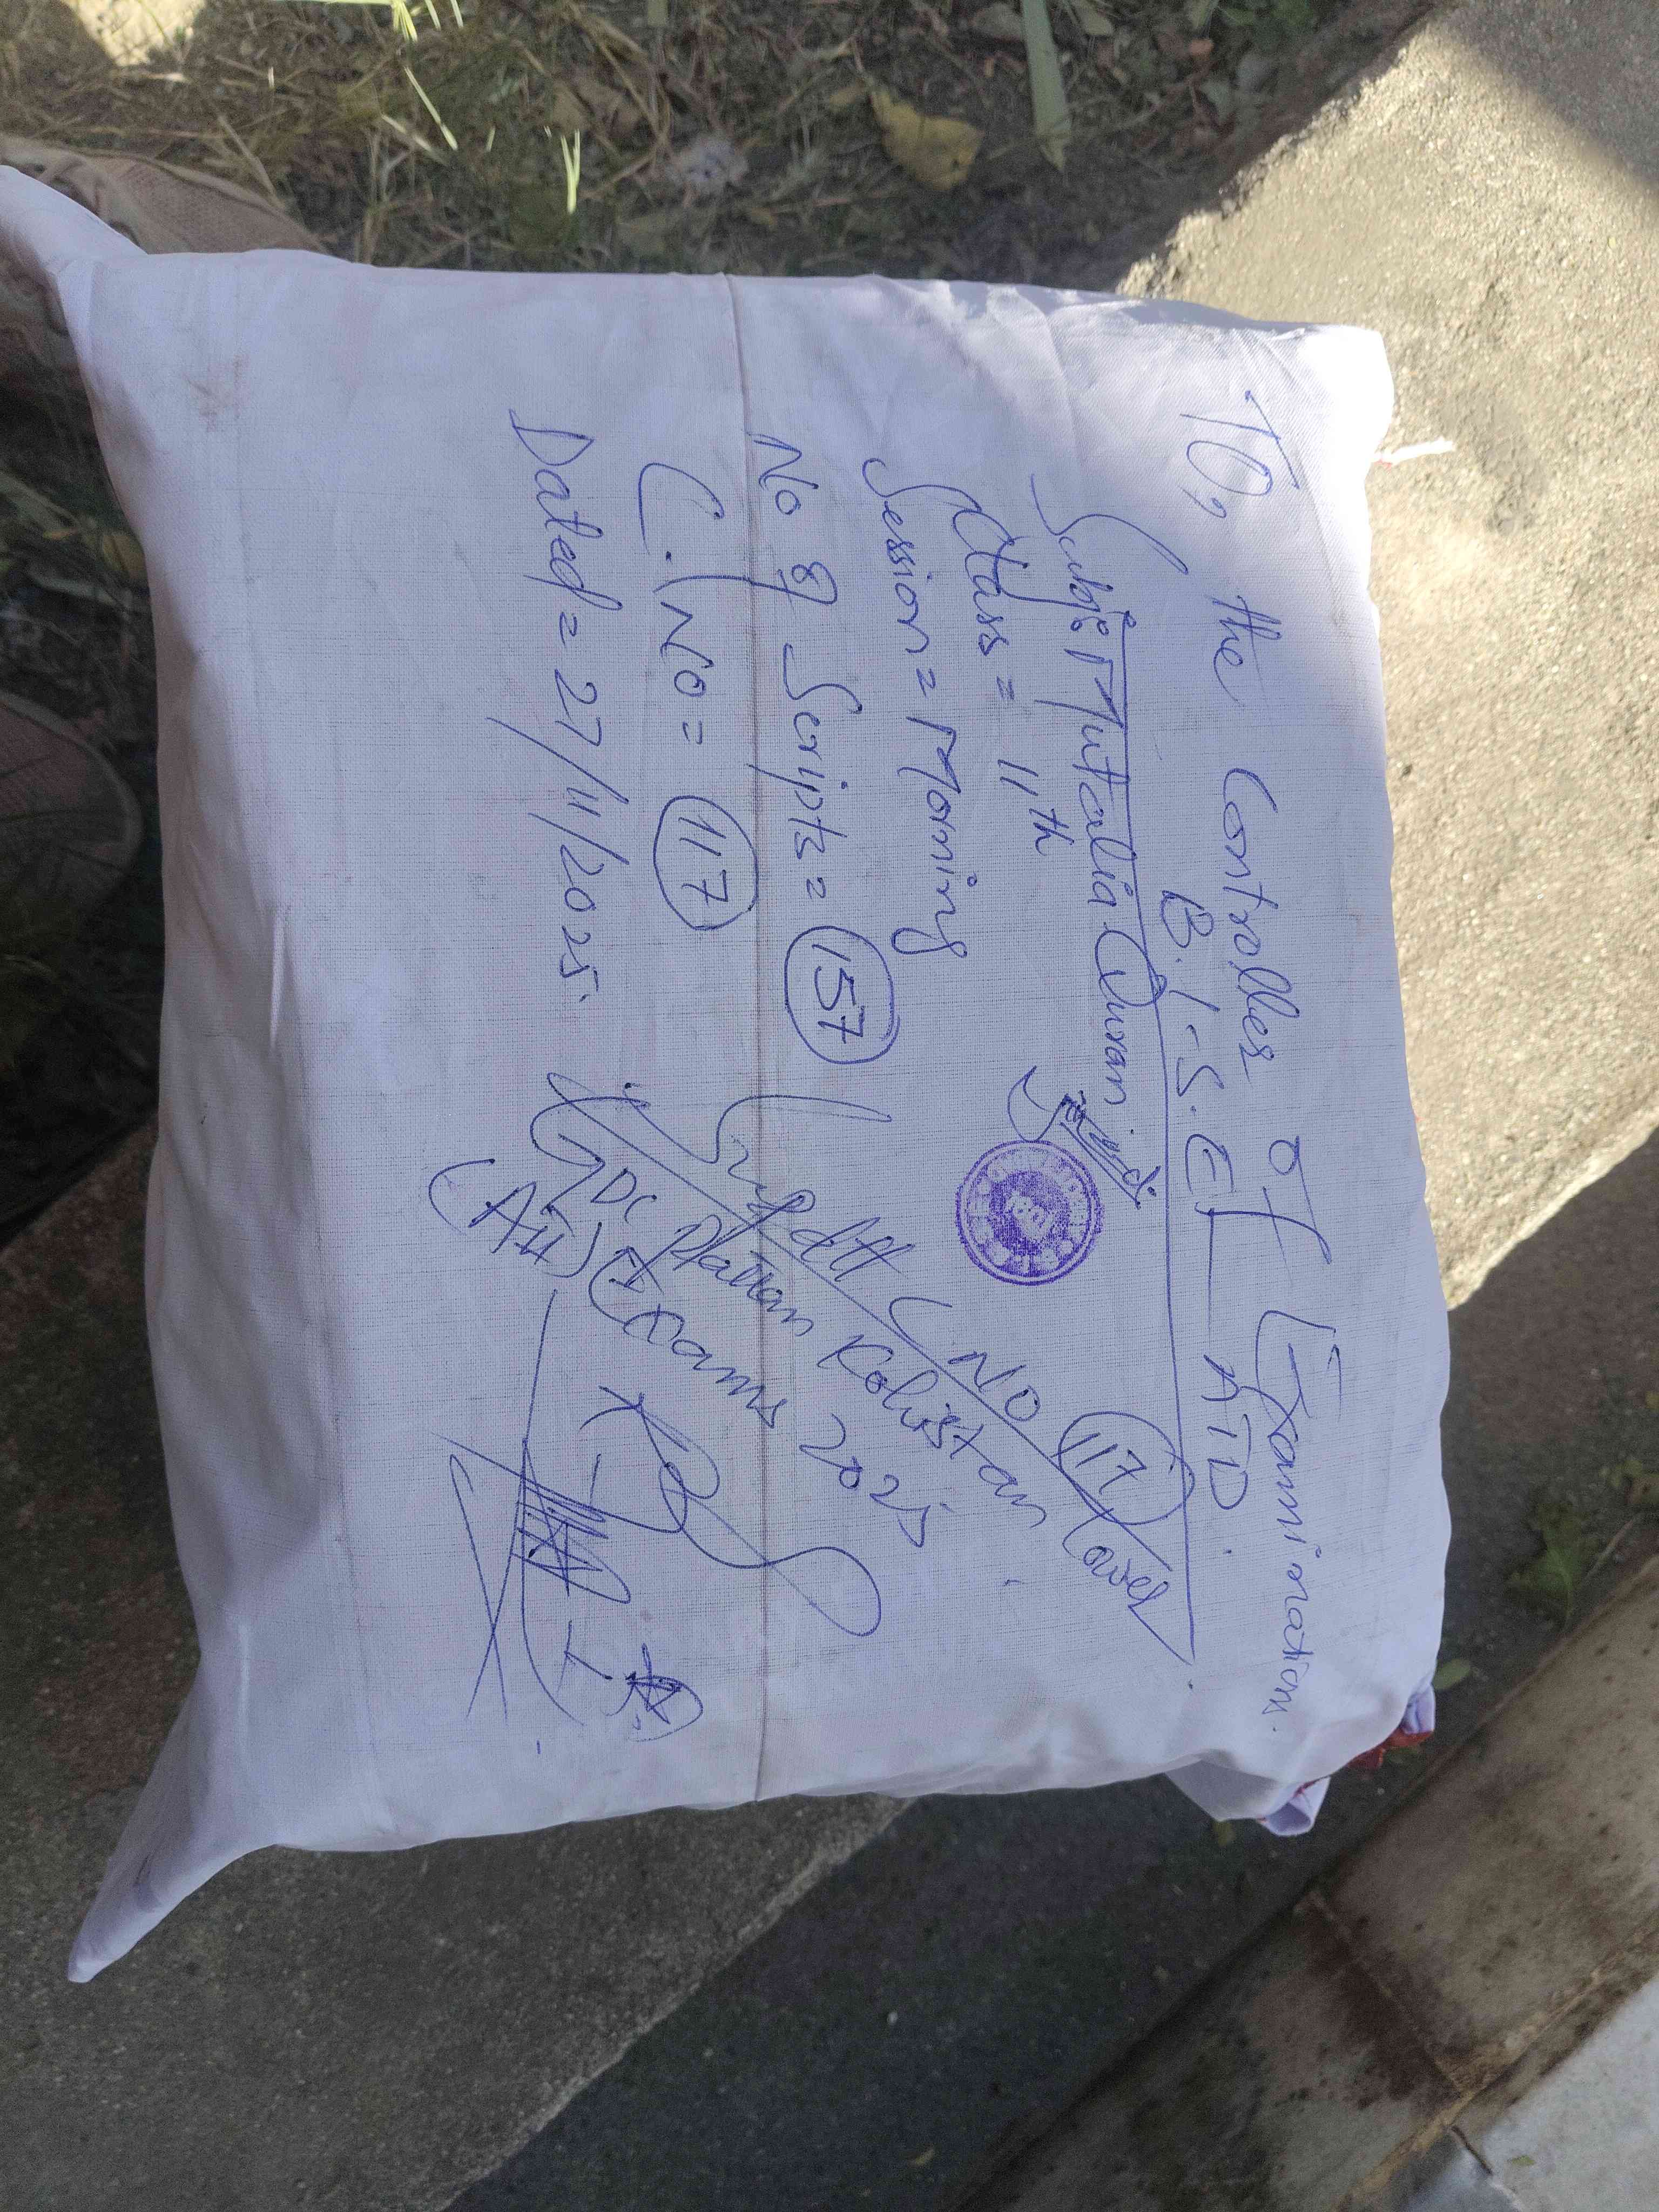 TO, the Controller of Examinations.
B.I.S.E ATD.
Subj: Mutalia Quran
Class = 11th
Session = Morning
No of Scripts = 157
C. No = 117
Dated = 27/11/2025
Supdtt C NO 117 Lower
GDC Pattan Kohistan
(AII) Exams 2025